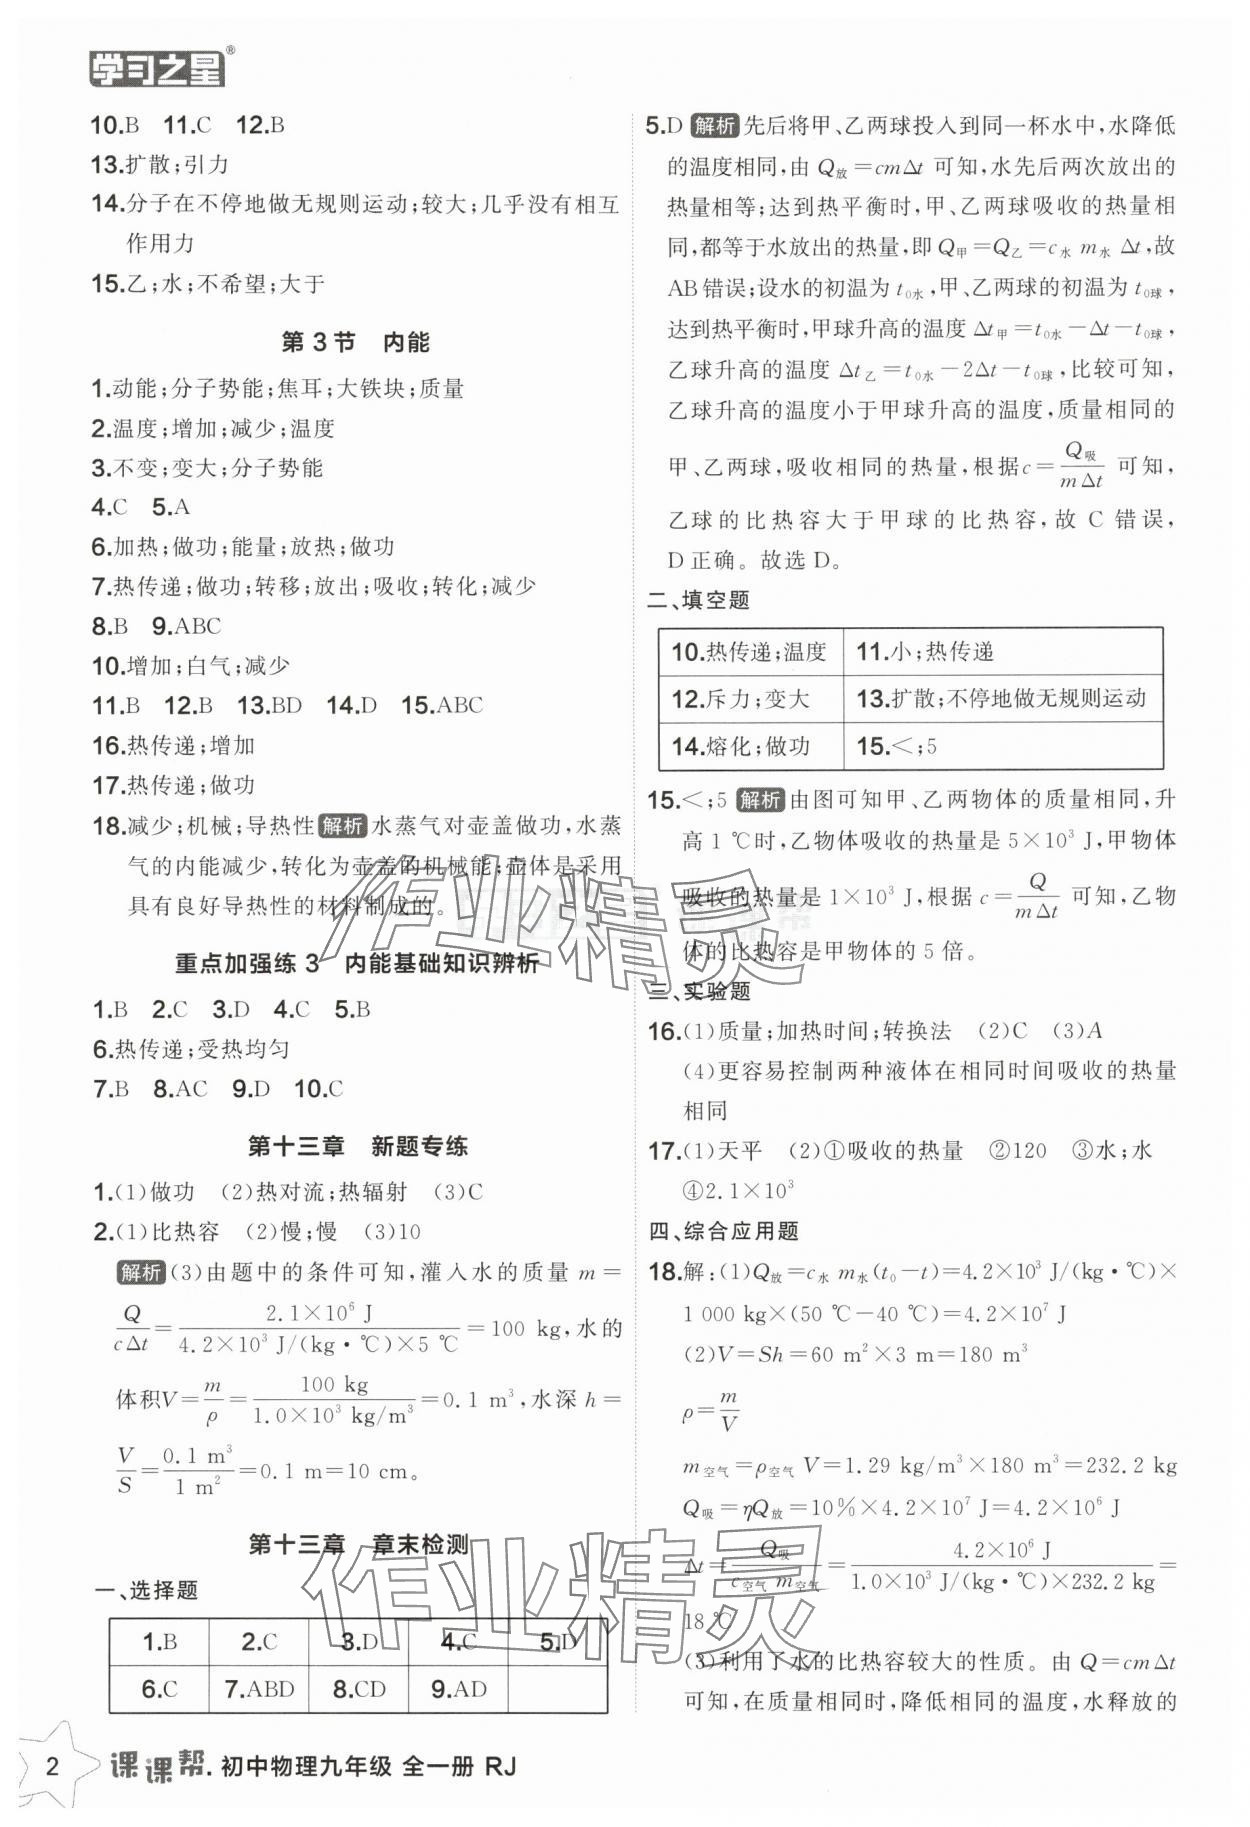 学习之星®
10.B 11.C 12.B
13.扩散;引力
14.分子在不停地做无规则运动;较大;几乎没有相互
作用力
15.乙;水;不希望;大于
第3节 内能
1.动能;分子势能;焦耳;大铁块;质量
2.温度;增加;减少;温度
3.不变;变大;分子势能
4.C 5.A
6.加热;做功;能量;放热;做功
7.热传递;做功;转移;放出;吸收;转化;减少
8.B 9.ABC
10.增加;白气;减少
11.B 12.B 13.BD 14.D 15.ABC
16.热传递;增加
17.热传递;做功
18.减少;机械;导热性 解析 水蒸气对壶盖做功,水蒸
气的内能减少,转化为壶盖的机械能;壶体是采用
具有良好导热性的材料制成的。
重点加强练3 内能基础知识辨析
1.B 2.C 3.D 4.C 5.B
6.热传递;受热均匀
7.B 8.AC 9.D 10.C
第十三章 新题专练
1.(1)做功 (2)热对流;热辐射 (3)C
2.(1)比热容 (2)慢;慢 (3)10
解析 (3)由题中的条件可知,灌入水的质量 m=
Q/(cΔt)=2.1×10⁶ J/(4.2×10³ J/(kg·℃)×5 ℃)=100 kg,水的
体积V=m/ρ=100 kg/(1.0×10³ kg/m³)=0.1 m³,水深 h=
V/S=0.1 m³/1 m²=0.1 m=10 cm。
第十三章 章末检测
一、选择题
1.B 2.C 3.D 4.C 5.D
6.C 7.ABD 8.CD 9.AD
5.D 解析 先后将甲、乙两球投入到同一杯水中,水降低
的温度相同,由 Q放=cmΔt 可知,水先后两次放出的
热量相等;达到热平衡时,甲、乙两球吸收的热量相
同,都等于水放出的热量,即 Q甲=Q乙=c水 m水 Δt,故
AB错误;设水的初温为 t0水,甲、乙两球的初温为 t0球,
达到热平衡时,甲球升高的温度 Δt甲=t0水-Δt-t0球,
乙球升高的温度 Δt乙=t0水-2Δt-t0球,比较可知,
乙球升高的温度小于甲球升高的温度,质量相同的
甲、乙两球,吸收相同的热量,根据c=Q吸/(mΔt) 可知,
乙球的比热容大于甲球的比热容,故 C 错误,
D正确。故选D。
二、填空题
10.热传递;温度 11.小;热传递
12.斥力;变大 13.扩散;不停地做无规则运动
14.熔化;做功 15.<;5
15.<;5 解析 由图可知甲、乙两物体的质量相同,升
高1 ℃时,乙物体吸收的热量是 5×10³ J,甲物体
吸收的热量是 1×10³ J,根据 c=Q/(mΔt) 可知,乙物
体的比热容是甲物体的5倍。
三、实验题
16.(1)质量;加热时间;转换法 (2)C (3)A
(4)更容易控制两种液体在相同时间吸收的热量
相同
17.(1)天平 (2)①吸收的热量 ②120 ③水;水
④2.1×10³
四、综合应用题
18.解:(1)Q放=c水 m水(t₀-t)=4.2×10³ J/(kg·℃)×
1 000 kg×(50 ℃-40 ℃)=4.2×10⁷ J
(2)V=Sh=60 m²×3 m=180 m³
ρ=m/V
m空气=ρ空气 V=1.29 kg/m³×180 m³=232.2 kg
Q吸=ηQ放=10%×4.2×10⁷ J=4.2×10⁶ J
Δt=Q吸/(c空气 m空气)=4.2×10⁶ J/(1.0×10³ J/(kg·℃)×232.2 kg)=
18 ℃
(3)利用了水的比热容较大的性质。由 Q=cmΔt
可知,在质量相同时,降低相同的温度,水释放的
作业精灵
作业精灵
2 课课帮.初中物理九年级 全一册 RJ